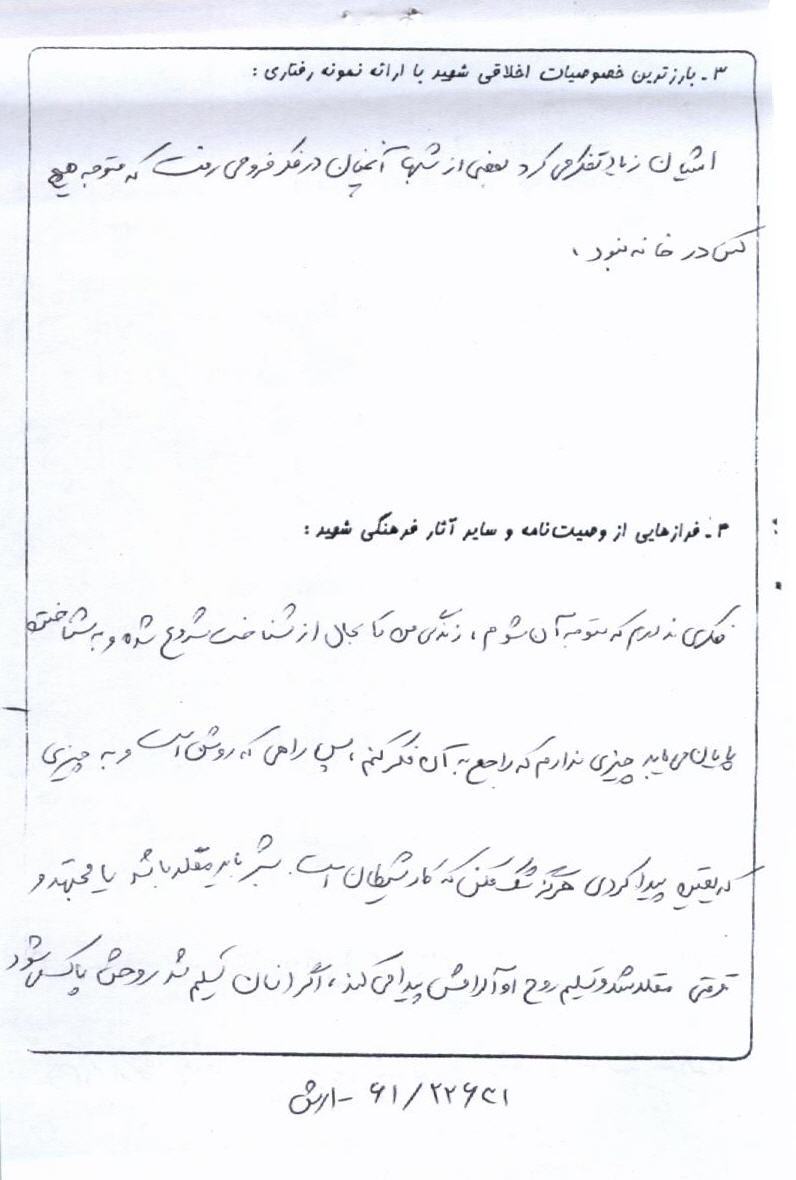 ۳ـ بارزترین خصوصیات اخلاقی شهید با ارائه نمونه رفتاری :
ایشان زیاد تفکر می کرد بعضی از شبها آنچنان در فکر فرو می رفت که متوجه هیچ
کس در خانه نبود .
۴ـ فرازهایی از وصیت‌نامه و سایر آثار فرهنگی شهید :
فکری ندارم که متوجه آن شوم ، زندگی من تا بحال از شناخت شروع شده و به شناختن
پایان می یابد چیزی ندارم که راجع به آن فکر کنم ، پس راهی که روشن است و به چیزی
که یقین پیدا کردی هرگز شک مکن که کار شیطان است. بشر باید مقلد باشد یا مجتهد و
وقتی مقلد شد و تسلیم روح او آرامش پیدا می کند ، اگر انسان تسلیم شد روحش پاک می شود
۶۱/۲۲۶۴۱ - ارتش